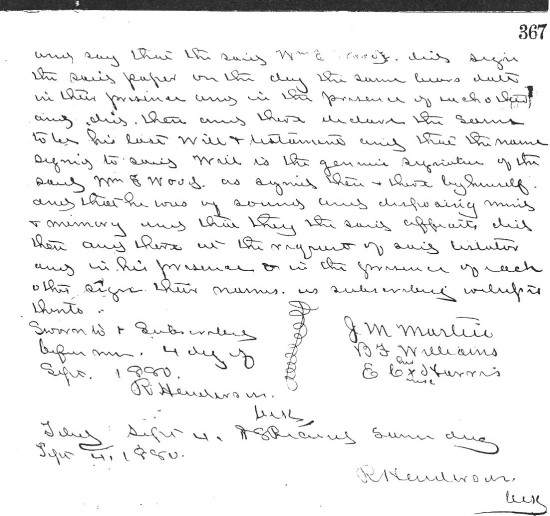 367
and say that the said Wm E Wood. did sign
the said paper on the day the same bears date
in their presence and in the presence of each other
and did. then and there declare the same
to be his last Will & testament and that the name
signed to said Will is the genuine signature of the
said Wm E Wood. as signed then & there by himself.
and that he was of sound and disposing mind
& memory and that they the said affiants did
then and there at the request of said testator
and in his presence & in the presence of each
other sign their names. as subscribing witnesses
thereto.
Sworn to & Subscribed
before me. 4 day of
Sept. 1880.
R Henderson.
Clerk
J M Martin
B F Williams
E C x Harris
Filed Sept 4. & Recorded Same day
Sept 4, 1880.
R Henderson.
Clerk